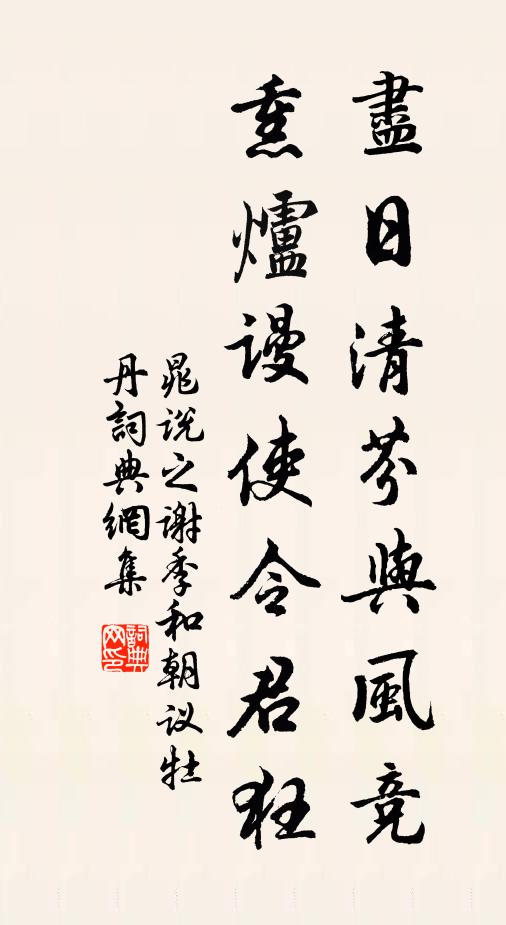 盡日清芬與風竞
熏爐谩使令君狂
晁说之谢季和朝议牡
丹詞典網集
詞典
网印